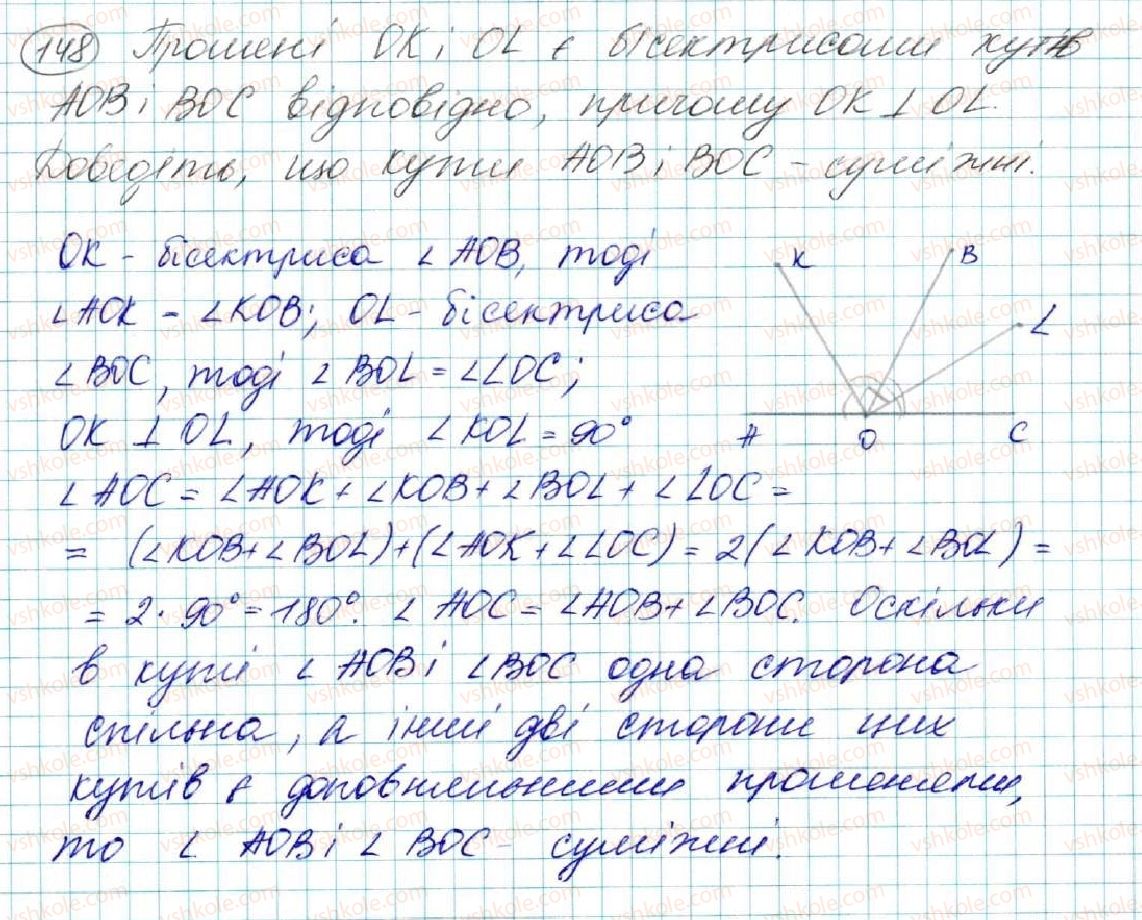 148 Промені OK і OL є бісектрисами кутів
AOB і BOC відповідно, причому OK ⊥ OL.
Доведіть, що кути AOB і BOC – суміжні.
OK – бісектриса ∠ AOB, тоді
∠AOK = ∠KOB; OL – бісектриса
∠BOC, тоді ∠BOL = ∠LOC;
OK ⊥ OL, тоді ∠KOL = 90°
K B L A O C
∠AOC = ∠AOK + ∠KOB + ∠BOL + ∠LOC =
= (∠KOB + ∠BOL) + (∠AOK + ∠LOC) = 2(∠KOB + ∠BOL) =
= 2 · 90° = 180°. ∠AOC = ∠AOB + ∠BOC. Оскільки
в куті ∠ AOB і ∠BOC одна сторона
спільна, а інші дві сторони цих
кутів є доповняльними променями,
то ∠ AOB і ∠ BOC – суміжні.
vshkole.com